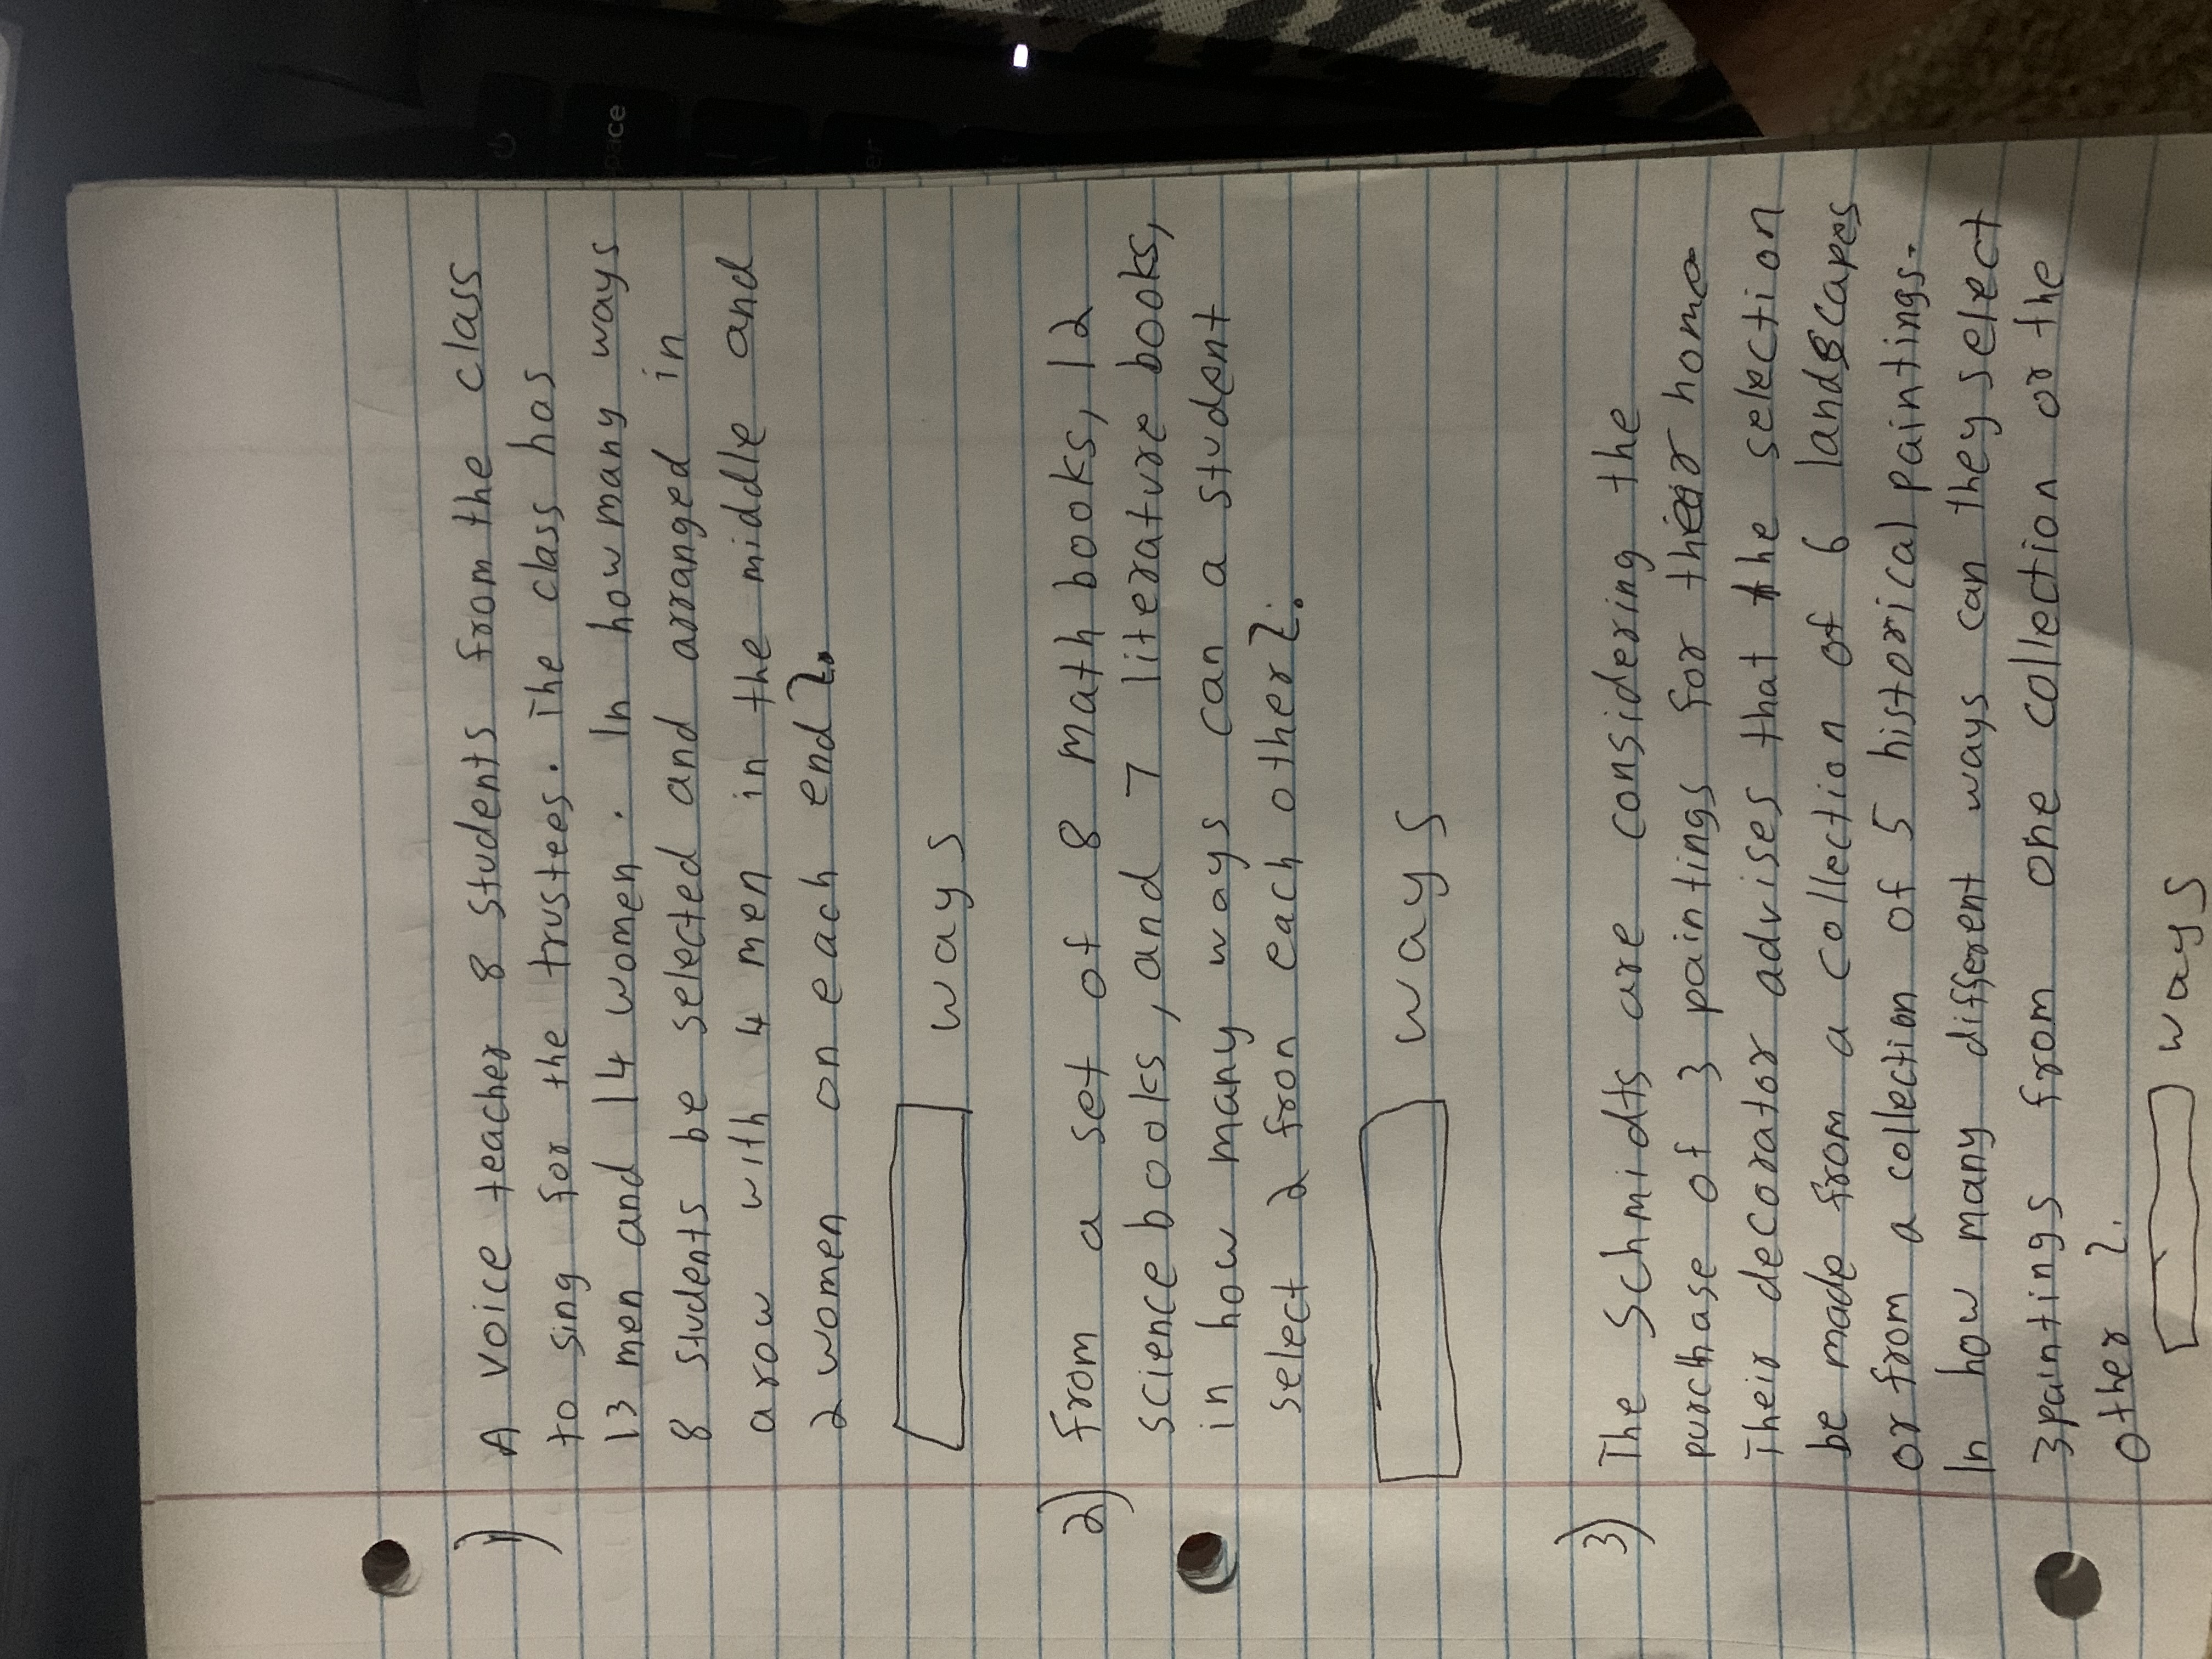 1) A voice teacher 8 students from the class
to sing for the trustees. The class has
13 men and 14 women. In how many ways
8 students be selected and arranged in
a row with 4 men in the middle and
2 women on each end?
ways
2) from a set of 8 math books, 12
science books, and 7 literature books,
in how many ways can a student
select 2 fron each other?
ways
3) The Schmidts are considering the
purchase of 3 paintings for their home
Their decorator advises that the selection
be made from a collection of 6 landscapes
or from a collection of 5 historical paintings.
In how many different ways can they select
3 paintings from one collection or the
other ?
ways
pace
er